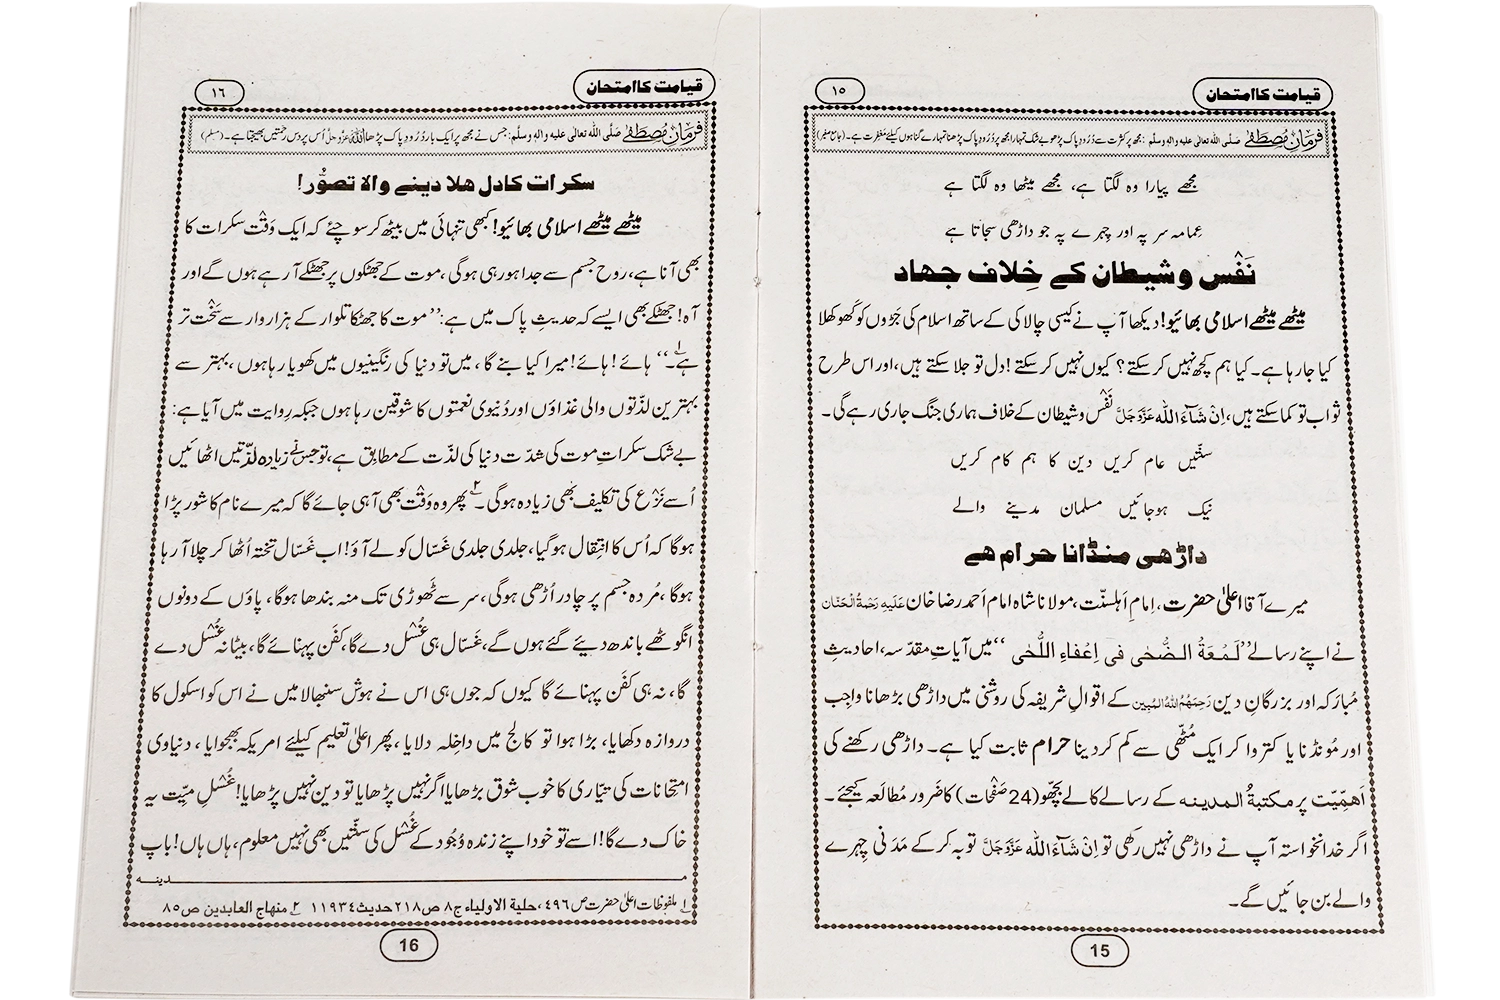 قیامت کا امتحان
۱۵
فرمانِ مصطفٰے صلَّی اللہ تعالٰی علیہ واٰلہٖ وسلَّم: مجھ پر کثرت سے دُرُودِ پاک پڑھو بے شک تمہارا مجھ پر دُرُودِ پاک پڑھنا تمہارے گناہوں کیلئے مغفرت ہے۔ (جامع صغیر)
مجھے پیارا وہ لگتا ہے، مجھے میٹھا وہ لگتا ہے
عِمامہ سر پہ اور چِہرے پہ جو داڑھی سجاتا ہے
نَفْس و شیطان کے خِلاف جھاد
میٹھے میٹھے اسلامی بھائیو! دیکھا آپ نے کیسی چالاکی کے ساتھ اسلام کی جَڑوں کو کَھوکھلا
کیا جا رہا ہے۔ کیا ہم کچھ نہیں کر سکتے؟ کیوں نہیں کر سکتے! دل تو جلا سکتے ہیں، اور اس طرح
ثواب تو کما سکتے ہیں، اِنْ شَآءَ اللہ عَزَّوَجَلَّ نَفْس و شیطان کے خلاف ہماری جنگ جاری رہے گی۔
سنّتیں عام کریں دین کا ہم کام کریں
نیک ہو جائیں مسلمان مدینے والے
داڑھی منڈانا حرام ھے
میرے آقا اعلیٰ حضرت، اِمامِ اَہلسنّت، مولانا شاہ امام اَحمد رضا خان عَلَیہِ رَحمَۃُ الْحَنَّان
نے اپنے رسالے ’’لَمْعَۃُ الضُّحٰی فی اِعْفَاءِ اللُّحٰی‘‘ میں آیاتِ مقدّسہ، احادیثِ
مُبارَکہ اور بزرگانِ دین رَحِمَہُمُ اللہُ الْمُبِین کے اقوالِ شریفہ کی روشنی میں داڑھی بڑھانا واجِب
اور مُونڈنا یا کتروا کر ایک مُٹھی سے کم کر دینا حرام ثابت کیا ہے۔ داڑھی رکھنے کی
اَھمِّیّت پر مکتبۃُ المدینہ کے رسالے کالے بچھو (24 صَفَحات) کا ضرور مُطالَعہ کیجئے۔
اگر خدانخواستہ آپ نے داڑھی نہیں رکھی تو اِنْ شَآءَ اللہ عَزَّوَجَلَّ توبہ کر کے مَدَنی چِہرے
والے بن جائیں گے۔
15
قیامت کا امتحان
۱۶
فرمانِ مصطفٰے صلَّی اللہ تعالٰی علیہ واٰلہٖ وسلَّم: جس نے مجھ پر ایک بار دُرُودِ پاک پڑھا اللہ عزوجل اُس پر دس رحمتیں بھیجتا ہے۔ (مسلم)
سکرات کا دل ھلا دینے والا تصوُّر!
میٹھے میٹھے اسلامی بھائیو! کبھی تنہائی میں بیٹھ کر سوچئے کہ ایک وَقْت سکرات کا
بھی آنا ہے، روح جسم سے جدا ہو رہی ہوگی، موت کے جھٹکوں پر جھٹکے آ رہے ہوں گے اور
آہ! جھٹکے بھی ایسے کہ حدیثِ پاک میں ہے: ’’موت کا جھٹکا تلوار کے ہزار وار سے سَخْت تر
ہے۱۔‘‘ ہائے! ہائے! میرا کیا بنے گا، میں تو دنیا کی رنگینیوں میں کھویا رہا ہوں، بہتر سے
بہترین لذّتوں والی غذاؤں اور دُنیوی نعمتوں کا شوقین رہا ہوں جبکہ رِوایت میں آیا ہے:
بے شک سکراتِ موت کی شدّت دنیا کی لذّت کے مطابِق ہے، تو جس نے زیادہ لذّتیں اٹھائیں
اُسے نَزْع کی تکلیف بھی زیادہ ہوگی۔۲ پھر وہ وَقْت بھی آ ہی جائے گا کہ میرے نام کا شور پڑا
ہوگا کہ اُس کا انتِقال ہو گیا، جلدی جلدی غَسّال کو لے آؤ! اب غَسّال تختہ اُٹھا کر چلا آ رہا
ہوگا، مُردہ جسم پر چادر اُڑھی ہوگی، سر سے ٹھوڑی تک منہ بندھا ہوگا، پاؤں کے دونوں
انگوٹھے باندھ دیئے گئے ہوں گے، غَسّال ہی غُسْل دے گا، کفَن پہنائے گا، بیٹا نہ غُسْل دے
گا، نہ ہی کفَن پہنائے گا کیوں کہ جوں ہی اس نے ہوش سنبھالا میں نے اس کو اسکول کا
دروازہ دکھایا، بڑا ہوا تو کالج میں داخِلہ دلایا، پھر اعلیٰ تعلیم کیلئے امریکہ بھجوایا، دنیاوی
امتِحانات کی تیّاری کا خوب شوق بڑھایا اگر نہیں پڑھایا تو دین نہیں پڑھایا! غُسْلِ میِّت یہ
خاک دے گا! اسے تو خود اپنے زندہ وُجُود کے غُسْل کی سنّتیں بھی نہیں معلوم، ہاں ہاں! باپ
مدینہ
۱ ملفوظات اعلیٰ حضرت ص ۴۹۶، حلیۃ الاولیاء ج ۸ ص ۲۱۸ حدیث ۱۱۹۳۴ ۲ منھاج العابدین ص ۸۵
16